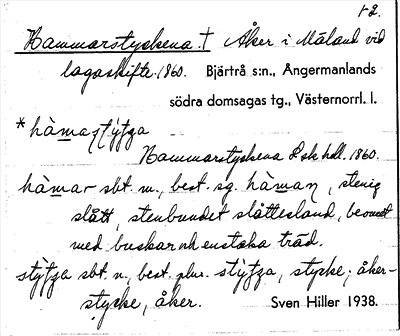 1-2.
Hammarstyckena † Åker i Mäland vid
lagaskifte 1860. Bjärtrå s:n., Ångermanlands
södra domsagas tg., Västernorrl. l.
*hàmarstýʒʒa
Hammarstyckena Lsk hdl. 1860.
hàmar sbt. m., best. sg. hàman, stenig
slått, stenbundet slåttesland, bevuxet
med buskar och enstaka träd.
stýʒʒa sbt. n., best. plur. stýʒʒa, stycke; åker-
stycke, åker. Sven Hiller 1938.